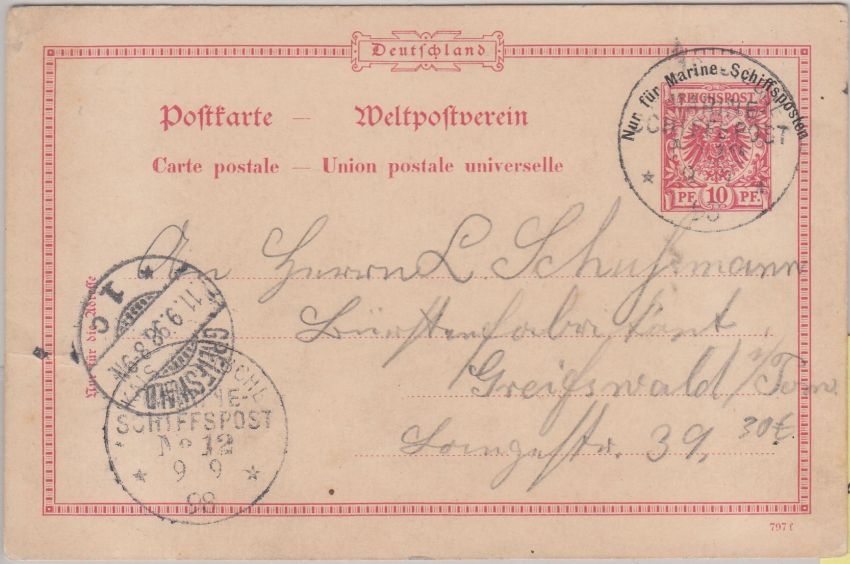 Deutschland
Postkarte — Weltpostverein
Carte postale — Union postale universelle
REICHSPOST
PF. 10 PF.
Nur für Marine-Schiffsposten
SCHIFFSPOST
98
An Herrn L. Schuhmann
Bürstenfabrikant,
Greifswald i/Pom
Langestr. 39,
Nur für die Adresse
GREIFSWALD
11.9.98.8-9N
1 c
SCHIFFSPOST
No 12
9 9
98
797 f